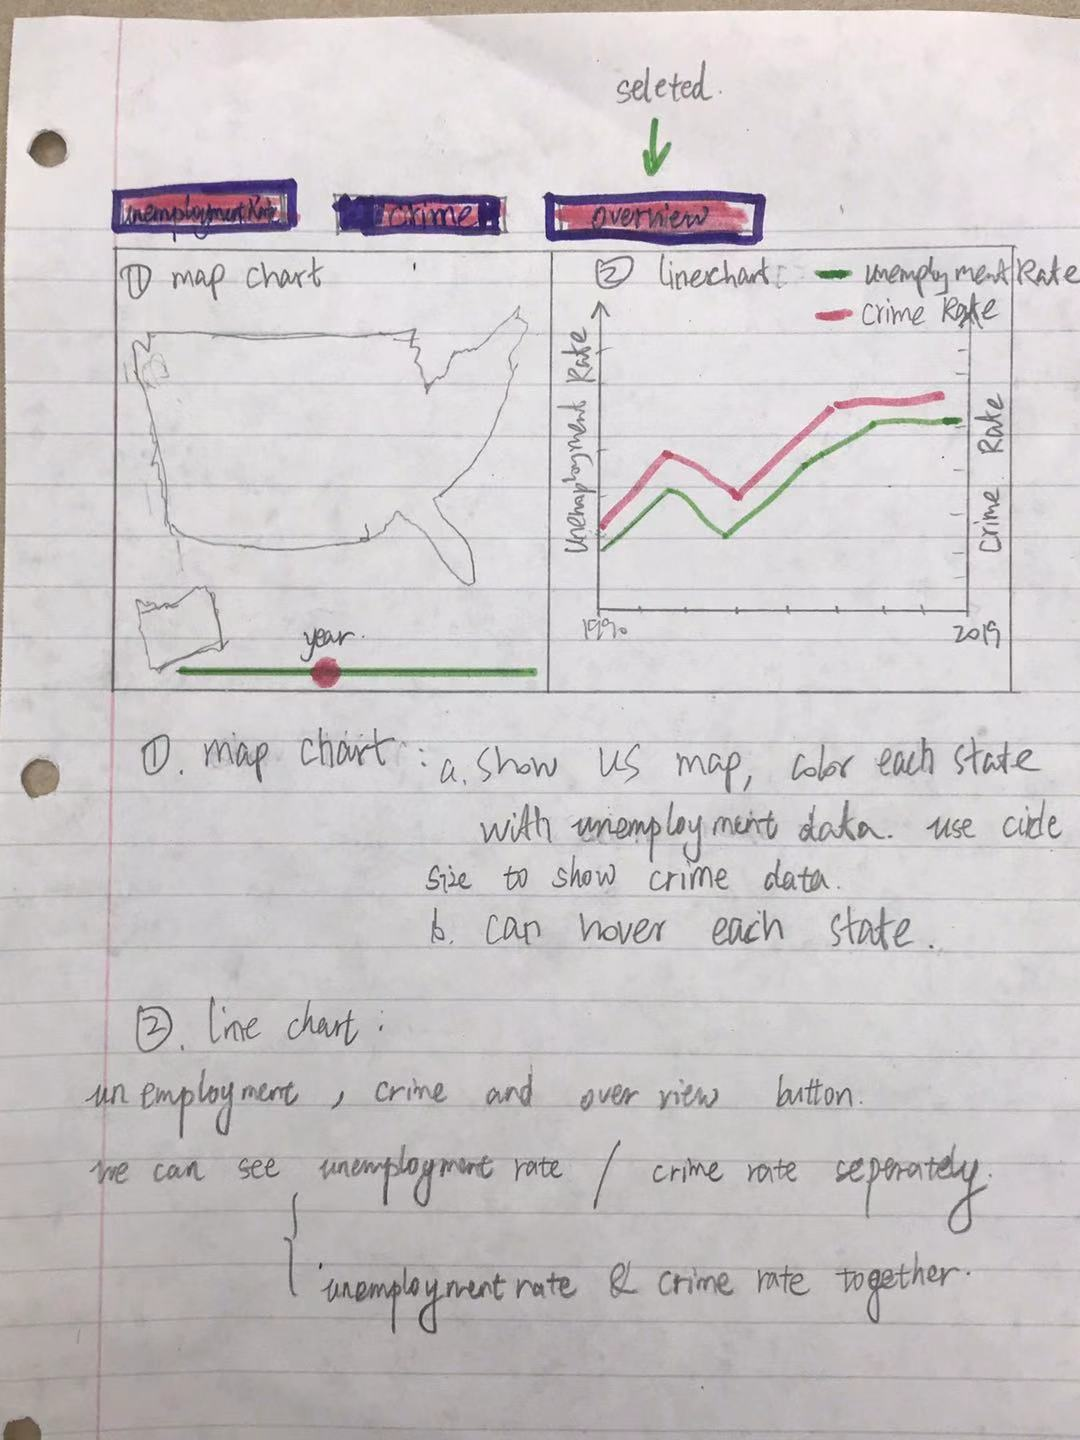 seleted.
unemployment Rate
crime
overview
① map chart
② linechart: unemployment Rate
crime Rate
Unemaployment Rate
Crime Rate
1990
2019
year.
①. map chart : a. show US map, color each state
with unemployment data. use circle
size to show crime data.
b. can hover each state.
②. line chart :
unemployment , crime and over view button.
we can see unemployment rate / crime rate seperately.
unemployment rate & crime rate together.